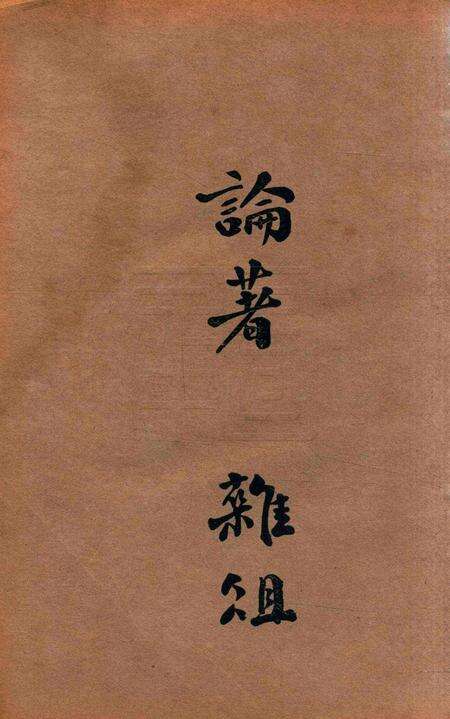 論著 雜俎